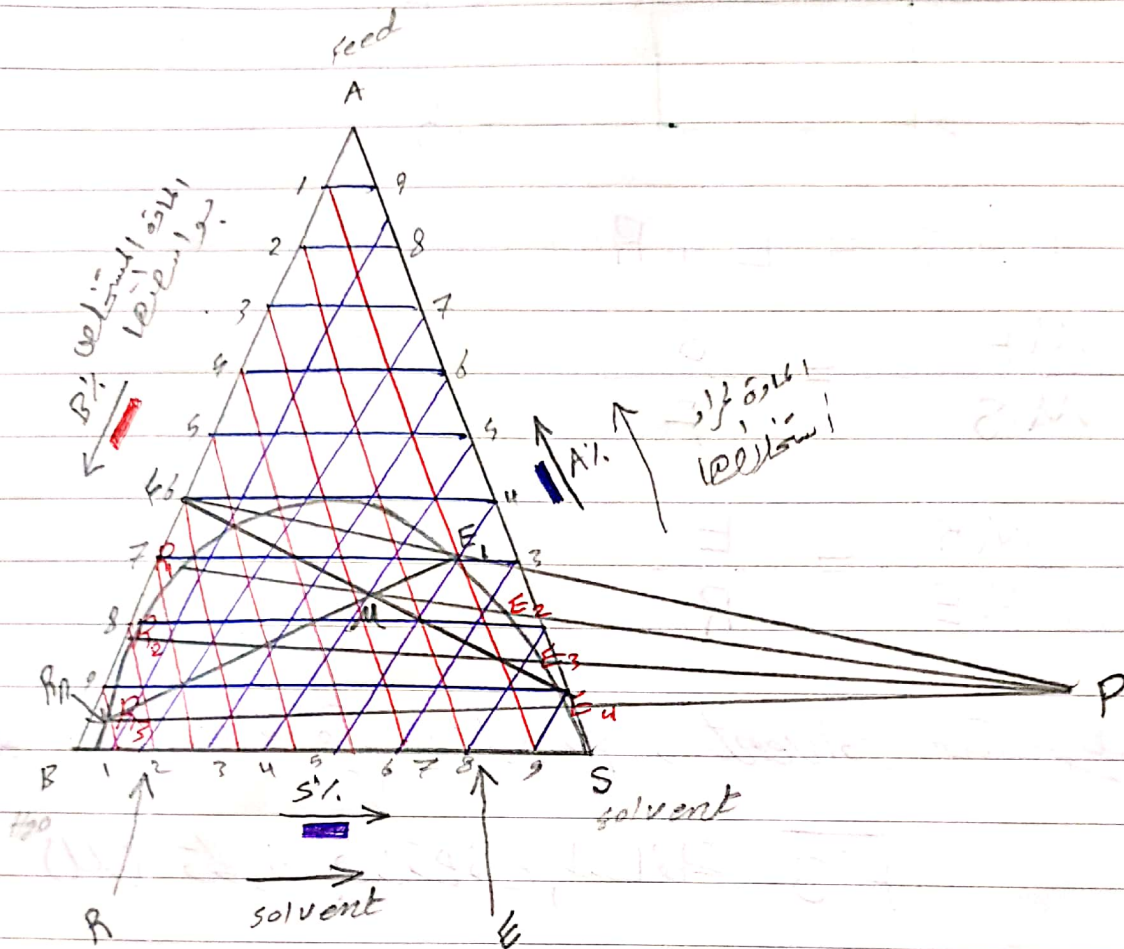 feed
A
1 9
2 8
3 7
4 6
5 5
6 4
7 R1 E1 3
8 R2 M E2
E3
Rn 9 R3 E4
P
B 1 2 3 4 5 6 7 8 9 S
B%
المادة
A%
المادة المراد
استخلاصها
S%
solvent
H2O
solvent
R
E